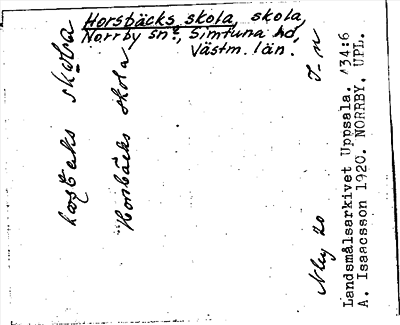 Horsbäcks skola, skola,
Norrby sn, Simtuna hd,
Västm. län.
skola
Horsbäcks skola
Nby 20
Landsmålsarkivet Uppsala. 134:6
A. Isaacsson 1920. NORRBY. UPL.